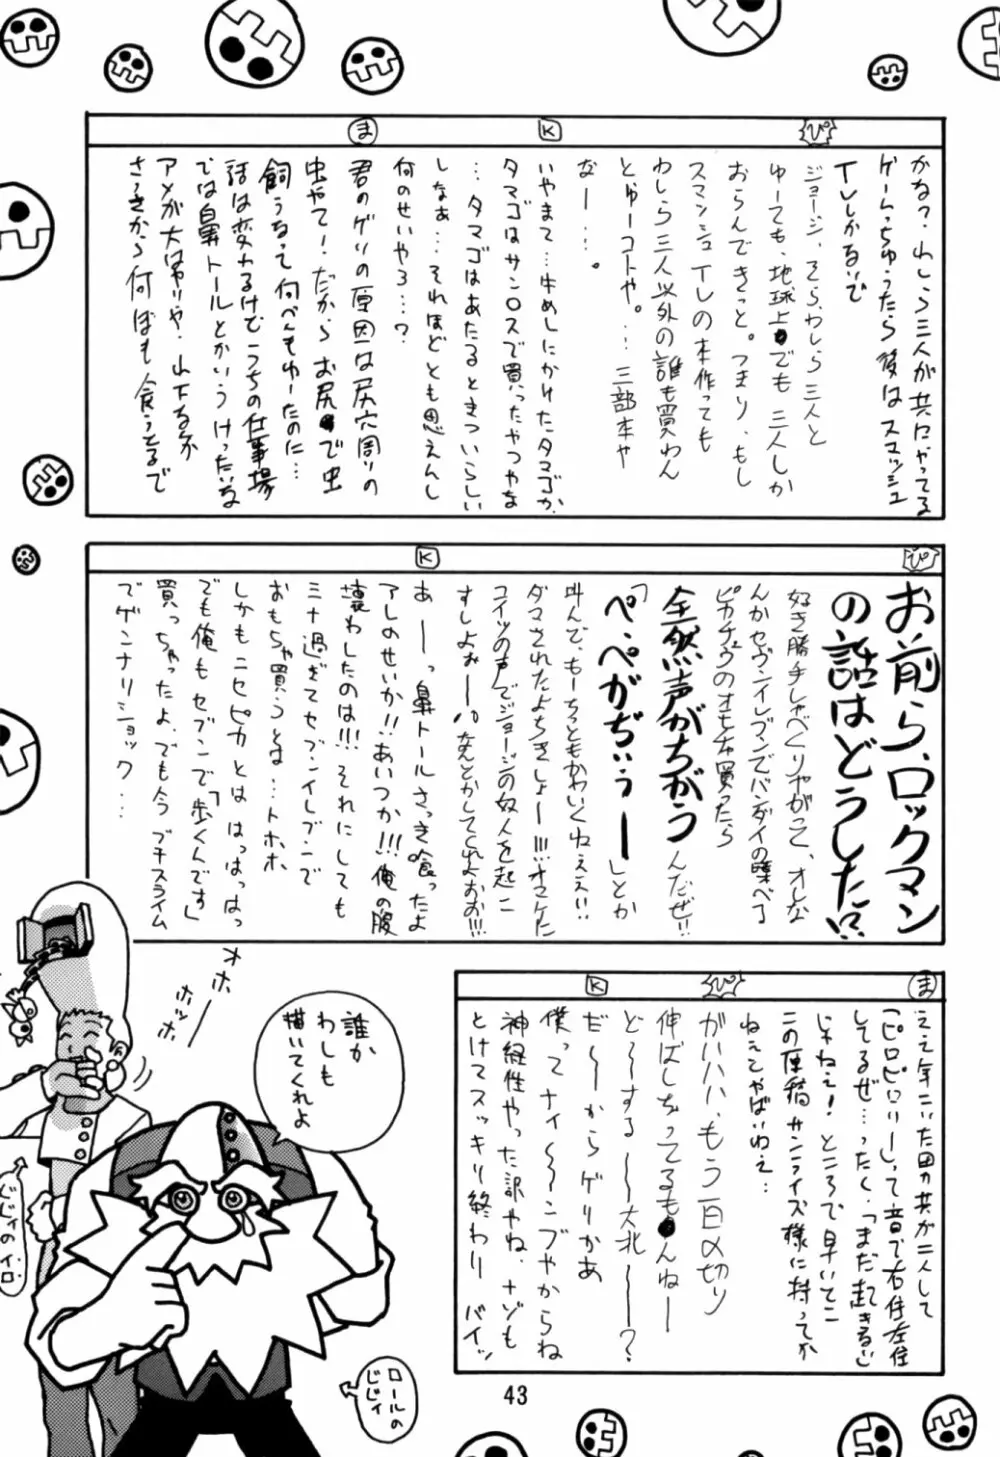 ぴ
かな?わしら三人が共にやってる
ゲームっちゅったら後はスマッシュ
TVしかないで
ジョージ、そらわしら三人と
ゆーても、地球上でも三人しか
おらんできっと。つまり、もし
スマッシュTVの本作っても
わしら三人以外の誰も買わん
とゆーコトや。…三部本や
なー…。
K
いやまて…牛めしにかけたタマゴか、
タマゴはサンロスで買ったやつやな
…タマゴはあたるときついらしい
しなぁ…それほどとも思えんし
何のせいやろ…?
ま
君のゲリの原因は尻穴周りの
虫やて!だから お尻で虫
飼うなって何べんもゆーたのに…
話は変わるけどうちの仕事場
では鼻トールとかいうけったいな
アメが大はやりや、山下るが
さっきから何ぼも食うとるで
ぴ
お前ら、ロックマン
の話はどうした!?
好き勝手しゃべくりやがって、オレな
んかセヴンイレブンでバンダイの喋べる
ピカチュウのオモチャ買ったら
全然声がちがう
んだぜ!!
「ペ、ペがぢぃうー」とか
叫んで、もーちっともかわいくねぇぇぃ!!
ダマされたよちきしょー!!!オマケに
コイツの声でジョージの奴人を起こ
すしよぉー、なんとかしてくれよおお!!!
K
あーーっ鼻トールさっき喰ったよ
アレのせいか!!あいつか!!!俺の腹
壊わしたのは!!!それにしても
ミナ過ぎてセブンイレブンで
おもちゃ買うとは…トホホ
しかもニセピカとは はっはっはっ
でも俺もセブンで「歩くんです」
買っちゃったよ、でも今ブチスライム
でゲンナリショック…
ま
ええ年こいた田力共が二人して
「ピロピロリー」って音で右往左往
してるぜ…ったく、「まだ起きるい」
じゃねえ!ところで早いてこ
この原稿サンライズ様に持ってか
ねえとやばいわぇ…
ぴ
ガハハハハ、もう一日〆切り
伸ばしちってるもんねー
ど〜〜する〜〜大北〜〜?
K
だ〜〜からゲリかぁ
僕ってナイ〜〜ンブやからね
神経性やった訳やね、ナゾも
とけてスッキリ終わり バイッ
オホーー
ホッホッ
誰か
わしも
描いてくれよ
じじィのイロ
ロールの
じじィ
43